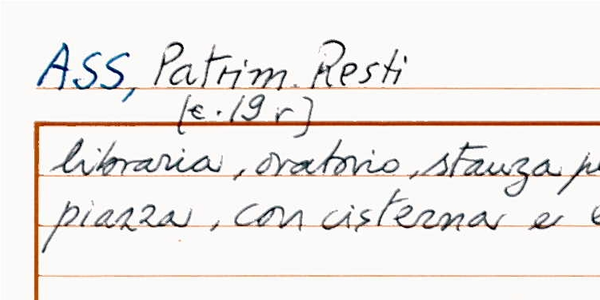 ASS, Patrim. Resti
[c. 19 r]
libraria, oratorio, stanza p
piazza, con cisterna e